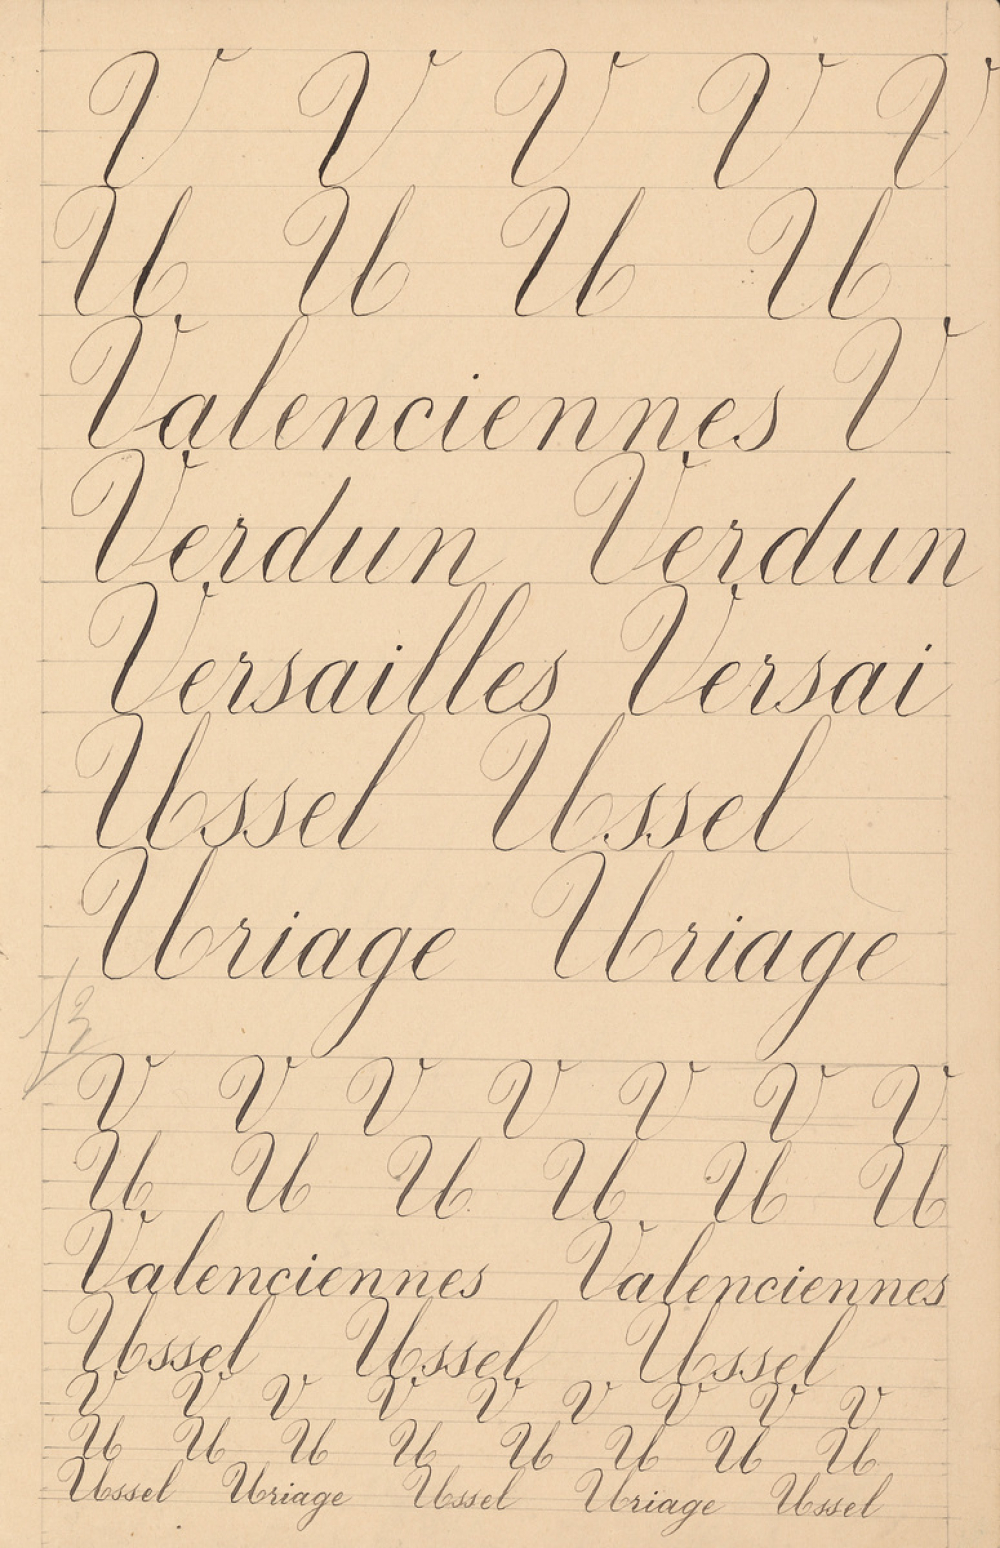 V V V V V
U U U U
Valenciennes V
Verdun Verdun
Versailles Versai
Ussel Ussel
Uriage Uriage
13
V V V V V V V
U U U U U U
Valenciennes Valenciennes
Ussel Ussel Ussel
V V V V V V V V V
U U U U U U U U
Ussel Uriage Ussel Uriage Ussel